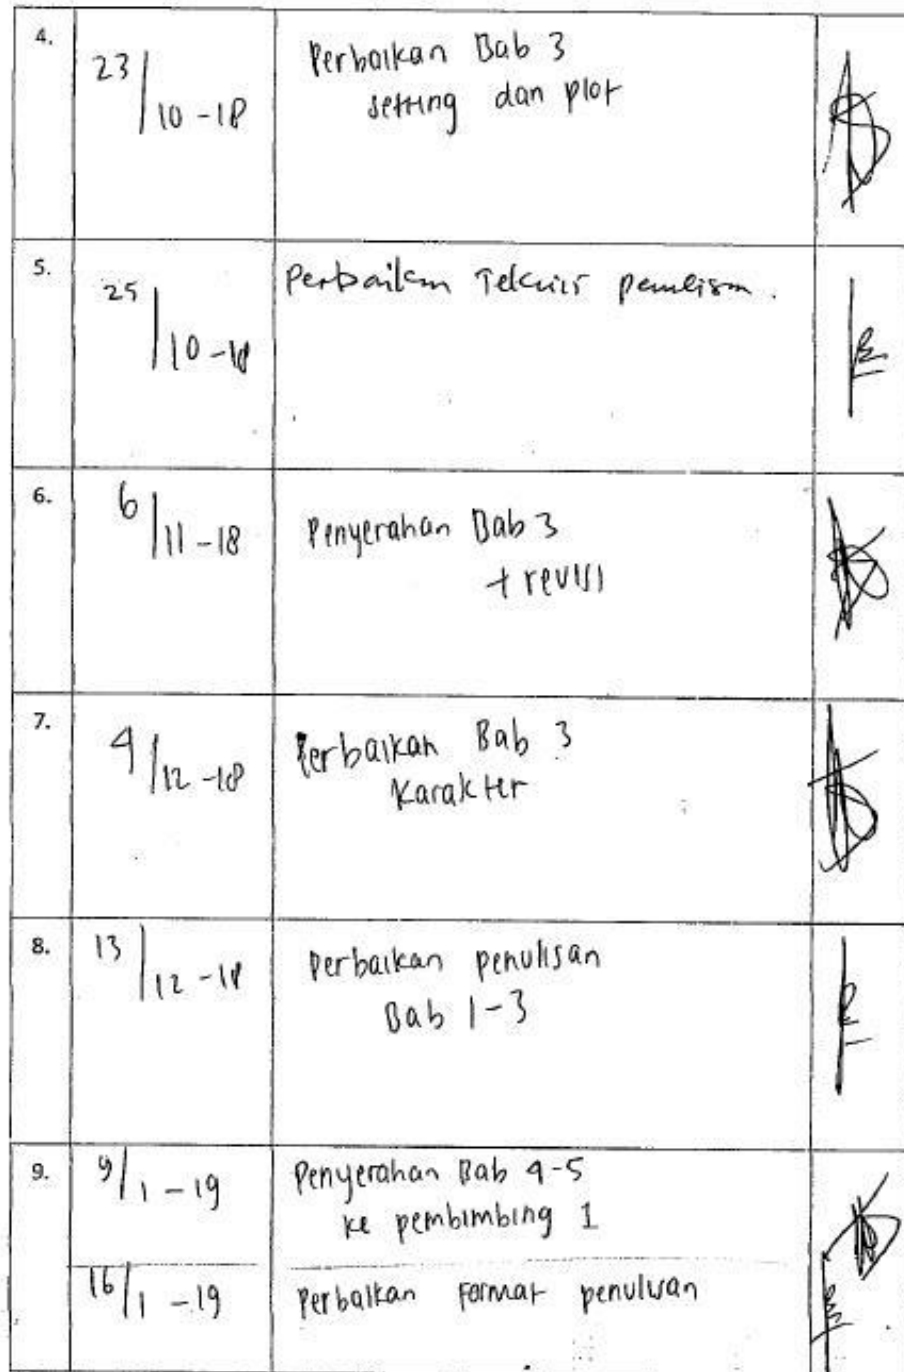 4.
23/10-18
Perbaikan Bab 3
setting dan plot
5.
25/10-18
perbaikan Teknis penulisan.
6.
6/11-18
Penyerahan Bab 3
+ revisi
7.
4/12-18
Perbaikan Bab 3
Karakter
8.
13/12-18
Perbaikan penulisan
Bab 1-3
9.
9/1-19
Penyerahan Bab 4-5
ke pembimbing 1
16/1-19
Perbaikan Format penulisan